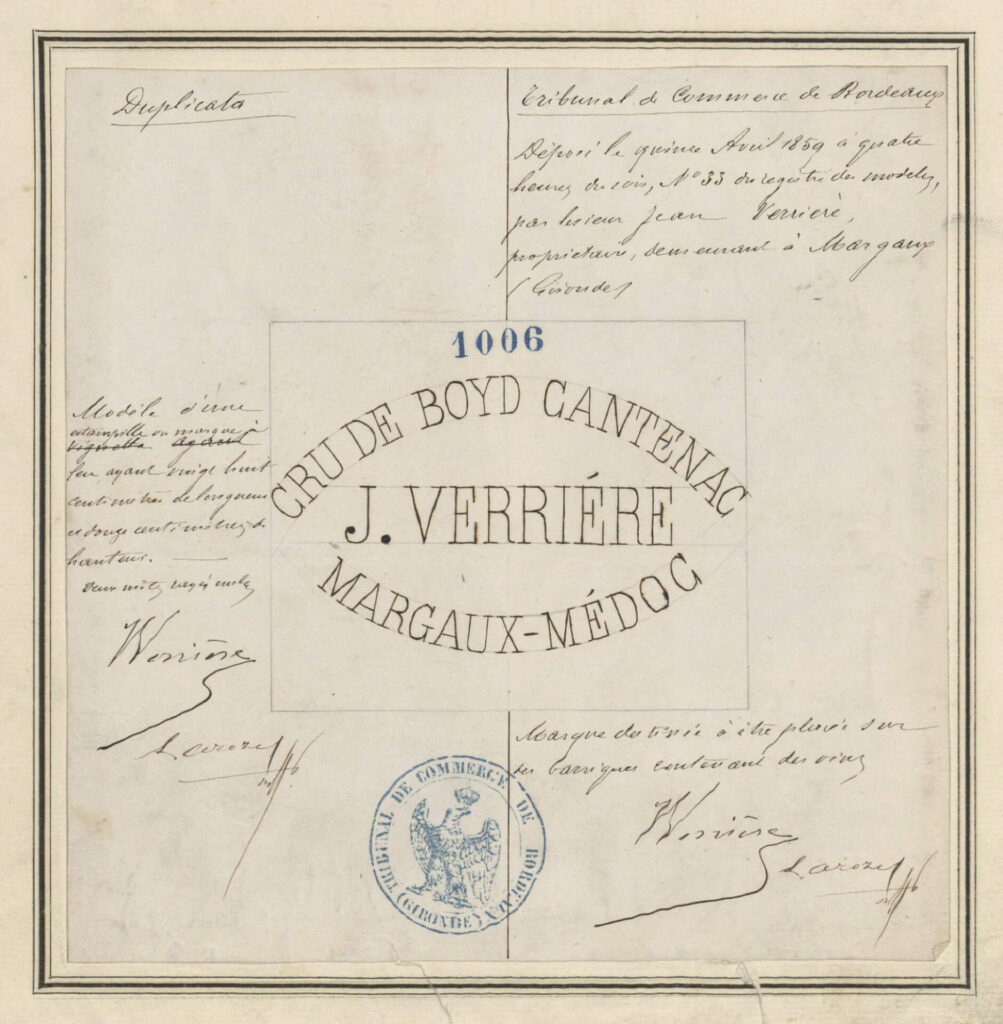 Duplicata
Tribunal de Commerce de Bordeaux
Déposé le quinze Avril 1859 à quatre
heures du soir, N° 33 du registre des modèles,
par le sieur Jean Verrière,
propriétaire, demeurant à Margaux
(Gironde)
1006
CRU DE BOYD CANTENAC
J. VERRIÉRE
MARGAUX-MÉDOC
Modèle d'une
estampille ou marque à
vignette ayant
feu ayant vingt huit
centimètres de longueur
et douze centimètres de
hauteur.
deux mots rayés nuls
Verrière
Marque destinée à être placée sur
des barriques contenant des vins
Verrière
TRIBUNAL DE COMMERCE DE BORDEAUX
(GIRONDE)